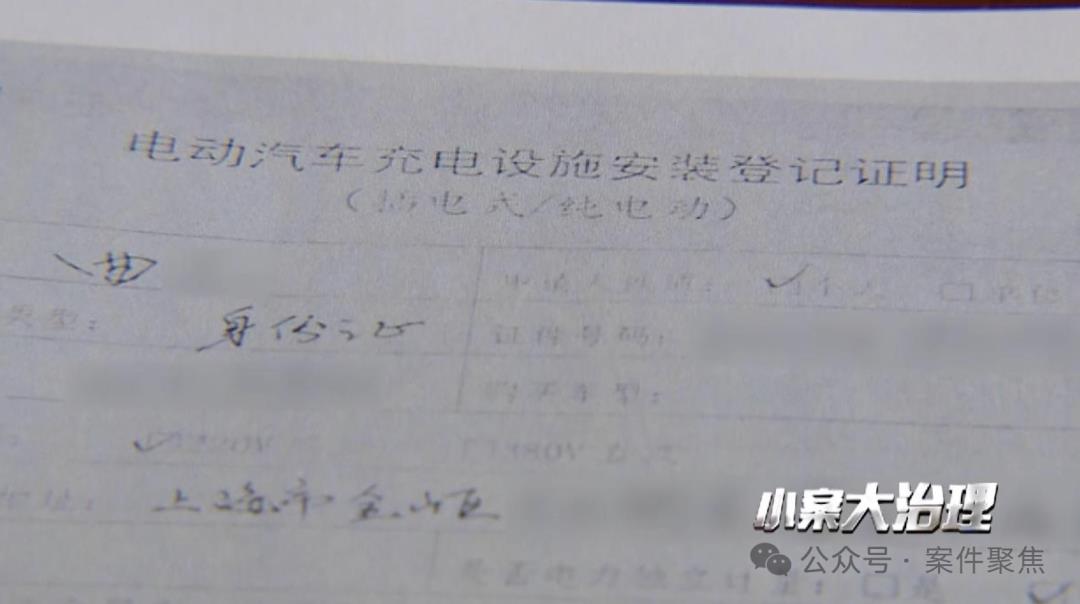 电动汽车充电设施安装登记证明
（插电式/纯电动）
曲 申请人性质： 个人 单位
类型： 身份证 证件号码：
购买车型：
220V 380V
地址： 上海市金山区
是否电力独立计量： 是
小案大治理
公众号·案件聚焦